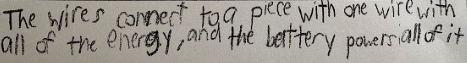 The wires connect to a piece with one wire with
all of the energy, and the bettery powers all of it